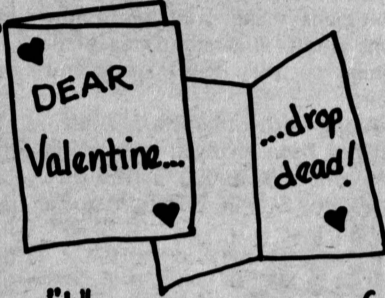 DEAR
Valentine...
...drop
dead!